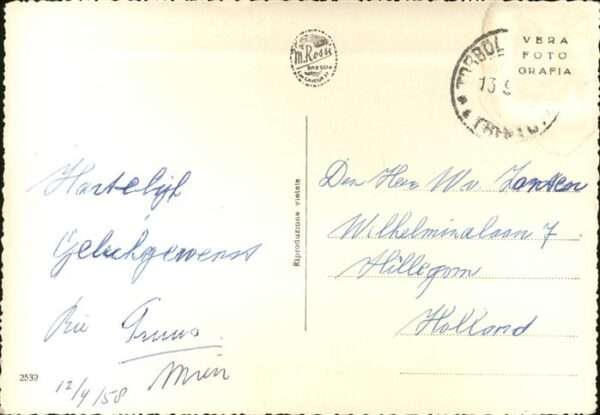 M. Rossi
BRESCIA
VERA
FOTO
GRAFIA
TORBOL
13 9
TRENTO
Hartelijk
Gelukgewenst
Rie Truus
Mien
12/9/58
2532
Riproduzione vietata
Den Heer W v. Zanten
Wilhelminalaan 7
Hillegom
Holland